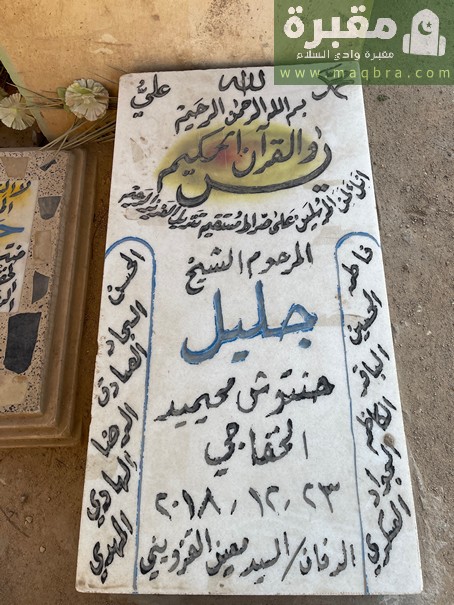 مقبرة
مقبرة وادي السلام
www.maqbra.com
الله
محمد
عليّ
بسم الله الرحمن الرحيم
يس
والقرآن الحكيم
انك لمن المرسلين على صراط مستقيم تنزيل العزيز الرحيم
المرحوم الشيخ
جليل
حنتوش محيميد
الخفاجي
٢٠١٨.١٢.٢٣
الدفان/السيد معين القزويني
فاطمه الحسين الباقر الكاظم الجواد العسكري
الحسن السجاد الصادق الرضا الهادي المهدي